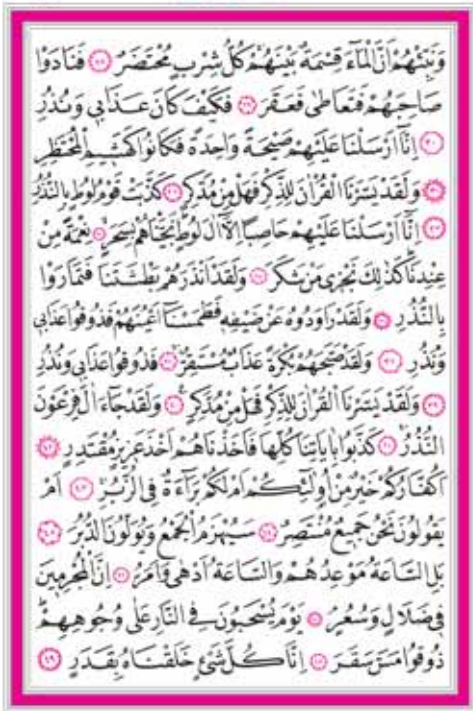 وَنَبِّئْهُمْ اَنَّ الْمَٓاءَ قِسْمَةٌ بَيْنَهُمْۚ كُلُّ شِرْبٍ مُحْتَضَرٌ ﴿٢٨﴾ فَنَادَوْا
صَاحِبَهُمْ فَتَعَاطٰى فَعَقَرَ ﴿٢٩﴾ فَكَيْفَ كَانَ عَذَابٖى وَنُذُرِ
﴿٣٠﴾ اِنَّٓا اَرْسَلْنَا عَلَيْهِمْ صَيْحَةً وَاحِدَةً فَكَانُوا كَهَشٖيمِ الْمُحْتَظِرِ
﴿٣١﴾ وَلَقَدْ يَسَّرْنَا الْقُرْاٰنَ لِلذِّكْرِ فَهَلْ مِنْ مُدَّكِرٍ ﴿٣٢﴾ كَذَّبَتْ قَوْمُ لُوطٍ بِالنُّذُرِ
﴿٣٣﴾ اِنَّٓا اَرْسَلْنَا عَلَيْهِمْ حَاصِبًا اِلَّٓا اٰلَ لُوطٍ نَجَّيْنَاهُمْ بِسَحَرٍ ﴿٣٤﴾ نِعْمَةً مِنْ
عِنْدِنَا كَذٰلِكَ نَجْزٖى مَنْ شَكَرَ ﴿٣٥﴾ وَلَقَدْ اَنْذَرَهُمْ بَطْشَتَنَا فَتَمَارَوْا
بِالنُّذُرِ ﴿٣٦﴾ وَلَقَدْ رَاوَدُوهُ عَنْ ضَيْفِهٖ فَطَمَسْنَٓا اَعْيُنَهُمْ فَذُوقُوا عَذَابٖى
وَنُذُرِ ﴿٣٧﴾ وَلَقَدْ صَبَّحَهُمْ بُكْرَةً عَذَابٌ مُسْتَقِرٌّ ﴿٣٨﴾ فَذُوقُوا عَذَابٖى وَنُذُرِ
﴿٣٩﴾ وَلَقَدْ يَسَّرْنَا الْقُرْاٰنَ لِلذِّكْرِ فَهَلْ مِنْ مُدَّكِرٍ ﴿٤٠﴾ وَلَقَدْ جَٓاءَ اٰلَ فِرْعَوْنَ
النُّذُرُ ﴿٤١﴾ كَذَّبُوا بِاٰيَاتِنَا كُلِّهَا فَاَخَذْنَاهُمْ اَخْذَ عَزٖيزٍ مُقْتَدِرٍ ﴿٤٢﴾
اَكُفَّارُكُمْ خَيْرٌ مِنْ اُو۬لٰٓئِكُمْ اَمْ لَكُمْ بَرَٓاءَةٌ فِى الزُّبُرِ ﴿٤٣﴾ اَمْ
يَقُولُونَ نَحْنُ جَمٖيعٌ مُنْتَصِرٌ ﴿٤٤﴾ سَيُهْزَمُ الْجَمْعُ وَيُوَلُّونَ الدُّبُرَ ﴿٤٥﴾
بَلِ السَّاعَةُ مَوْعِدُهُمْ وَالسَّاعَةُ اَدْهٰى وَاَمَرُّ ﴿٤٦﴾ اِنَّ الْمُجْرِمٖينَ
فٖى ضَلَالٍ وَسُعُرٍ ﴿٤٧﴾ يَوْمَ يُسْحَبُونَ فِى النَّارِ عَلٰى وُجُوهِهِمْ
ذُوقُوا مَسَّ سَقَرَ ﴿٤٨﴾ اِنَّا كُلَّ شَىْءٍ خَلَقْنَاهُ بِقَدَرٍ ﴿٤٩﴾